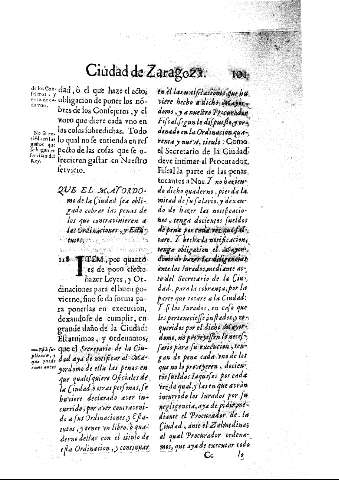 Ciudad de Zaragoza. 101
dad, ò el que haze el acto,
obligacion de poner los nõ-
bres de los Consejeros, y el
voto que diere cada vno en
las cosas sobredichas. Todo
lo qual no se entienda en res
pecto de las cosas que se o-
frecieren gastar en Nuestro
servicio.
QUE EL MAYORDO-
mo de la Ciudad sea obli-
gado cobrar las penas de
los que contravienen à
las Ordinaciones, y Esta-
tutos.
118 ITEM, por quanto
es de poco efecto
hazer Leyes, y Or-
dinaciones para el buen go-
vierno, sino se dà forma pa-
ra ponerlas en execucion,
dexandose de cumplir, en
grande daño de la Ciudad:
Estatuimos, y ordenamos,
que el Secretario de la Ciu-
dad aya de notificar al Ma-
yordomo de ella las penas en
que qualesquiere Oficiales de
la Ciudad, ò otras personas, se
huviere declarado aver in-
currido, por aver contraveni-
do à sus Ordinaciones, y Esta-
tutos, y tener un libro, ò qua-
derno de llar con el titulo de
esta Ordinacion, y continuar
en èl las notificaciones que hu-
viere hecho à dicho Mayor-
domo, y à nuestro Procurador
Fiscal, segun lo dispuesto, y or-
denado en la Ordinacion qua-
renta y nueve, titulo: Como
el Secretario de la Ciudad
deve intimar al Procurador
Fiscal la parte de las penas
tocantes à Nos. Y no hazien-
do dicho quaderno, pierda la
mitad de su salario, y dexan-
do de hazer las notificacio-
nes, tenga docientos sueldos
de pena por cada vez que fal-
tare. Y hecha la notificacion,
tenga obligacion el Mayor-
domo de hazer las diligencias
ante los Jurados, mediante ac-
to del Secretario de dicha
Ciudad, para la cobrança, por la
parte que tocare à la Ciudad:
Y si los Jurados, en caso que
les perteneciesse juzgarlos, y re-
queridos por el dicho Mayor-
domo, no proveyeren lo neces-
sario para su execucion, ten-
gan de pena cada uno de los
que no lo proveyeren, docien-
tos sueldos Jaqueses por cada
vez, la qual, y las en que avràn
incurrido los Jurados por su
negligencia, aya de pidir me-
diante el Procurador de la
Ciudad, ante el Zalmedina;
al qual Procurador ordena-
mos, que aya de executar todo
Cc lo